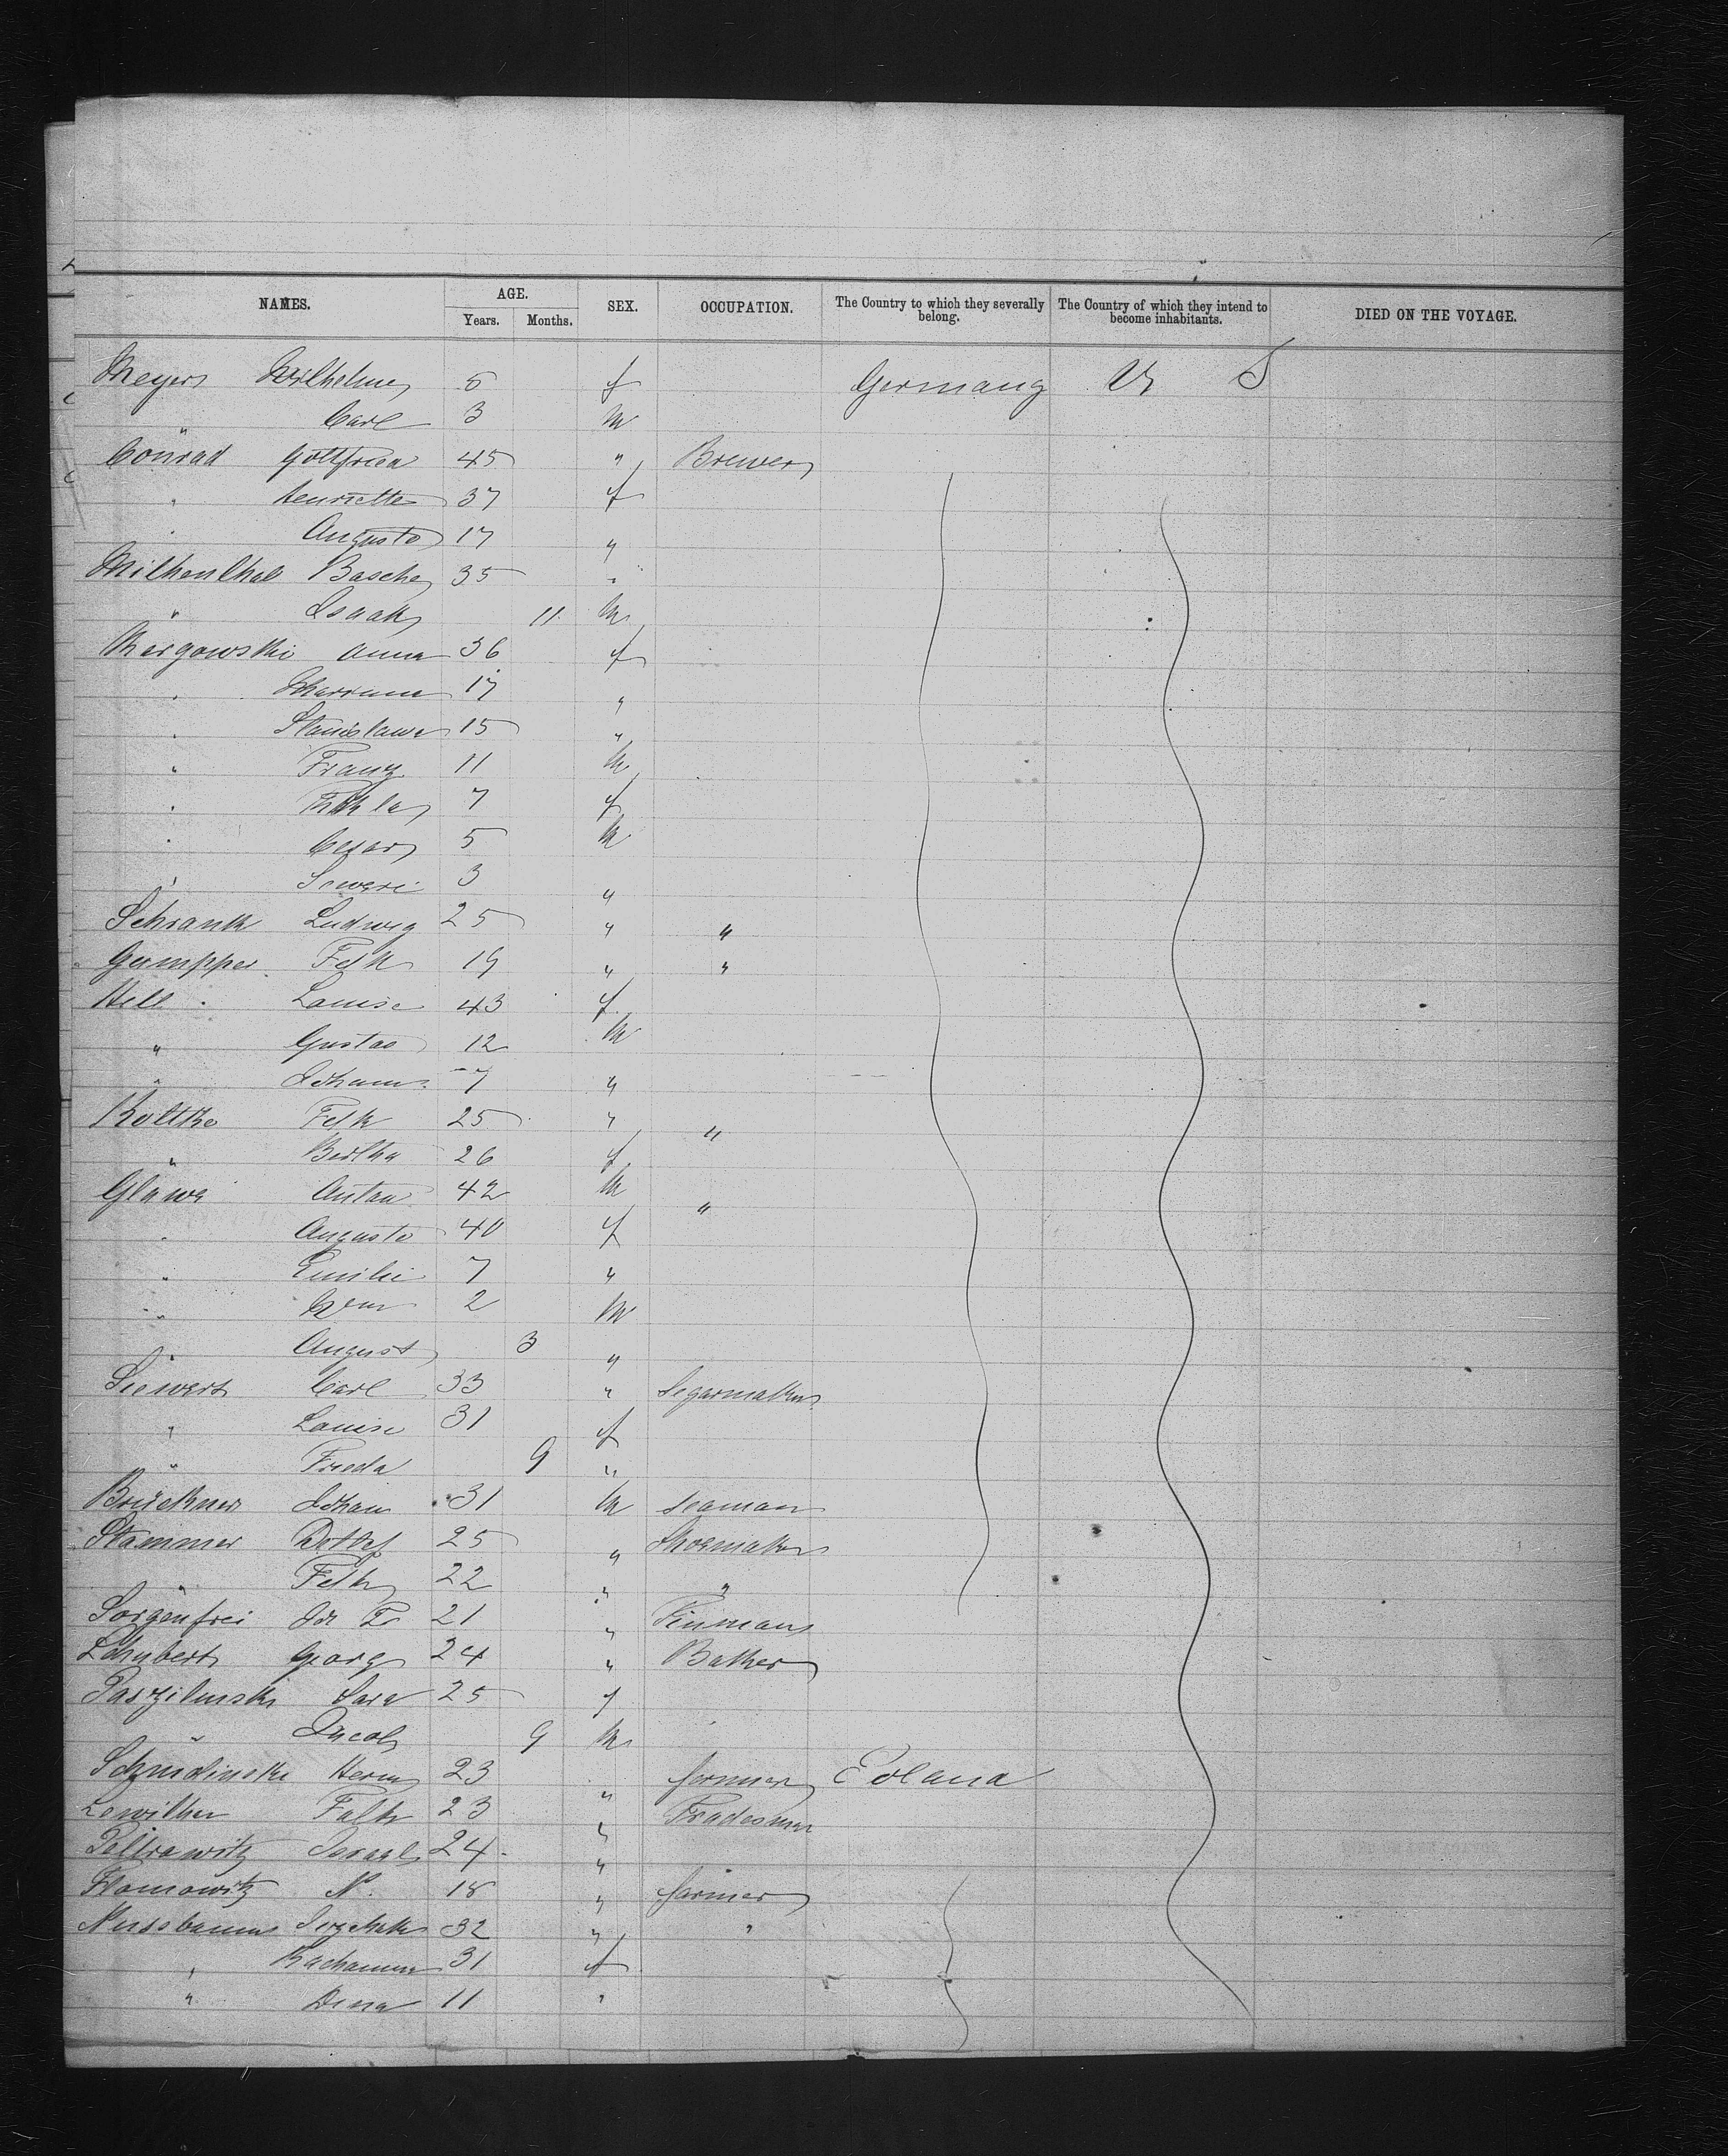 NAMES. AGE. SEX. OCCUPATION. The Country to which they severally belong. The Country of which they intend to become inhabitants. DIED ON THE VOYAGE.
Years. Months.
Meyers Wilhelme 6 f Germany U S
" Carl 3 m
Conrad Gottfried 45 " Brewer
" Henriette 37 f
" Auguste 17 "
Milkenthal Basche 35 "
" Isaak 11 m
Anna 36 f
" Marianna 17 "
" Stanislawa 15 "
" Franz 11 m
" 7 f
" Cesar 5 m
" Soweri 3 "
Schrank Ludwig 25 " "
Gumpper Felk 19 " "
Hell Louise 43 f
" Gustav 12 m
" Johann 7 "
Koltke Felk 25 " "
" Bertha 26 f
Gläwe Anton 42 m "
" Auguste 40 f
" Emilie 7 "
" 2 m
" August 3 "
Siewert Carl 33 " Segarmaker
" Louise 31 f
" Frieda 9 "
Brückner Johan 31 m seaman
Stammer Detlef 25 " Shoemaker
" Felk 22 " "
Sorgenfrei Joh 21 "
Schubert Georg 24 " Baker
Paszilinski Sara 25 f
" Jacob 9 m
Herm 23 " farmer Poland
Lewitker Falk 23 " Tradesman
Peltrawitz Israel 24 "
N. 18 " farmer
Nussbaum 32 " "
" 31 f
" Dina 11 "